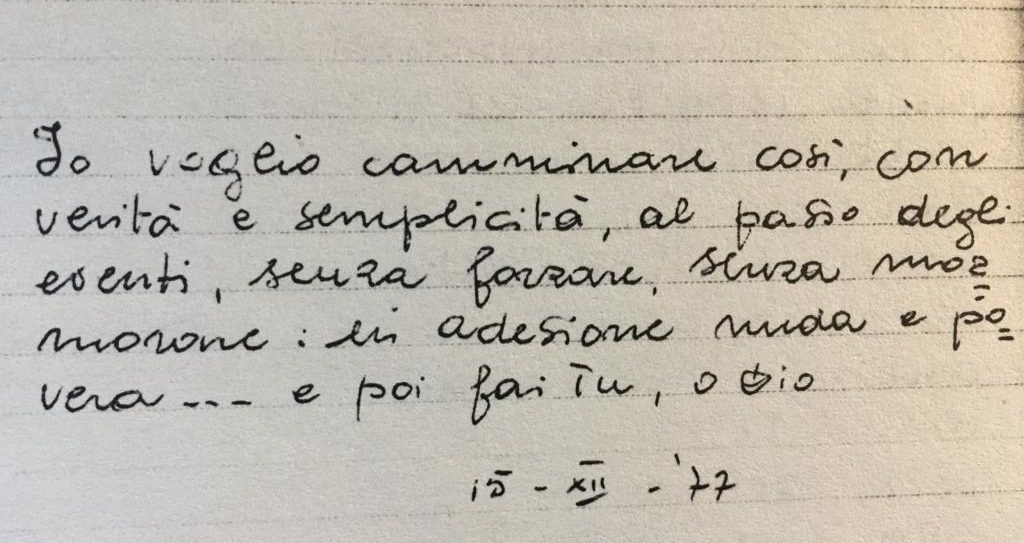 Io voglio camminare così, con
verità e semplicità, al passo degli
eventi, senza forzare, senza mor=
morare: in adesione nuda e po=
vera --- e poi fai Tu, o Dio
15 - XII - '77